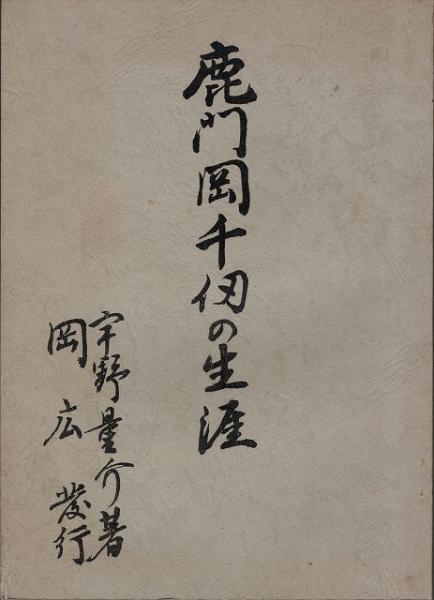 鹿門岡千仭の生涯
宇野量介著
岡広發行